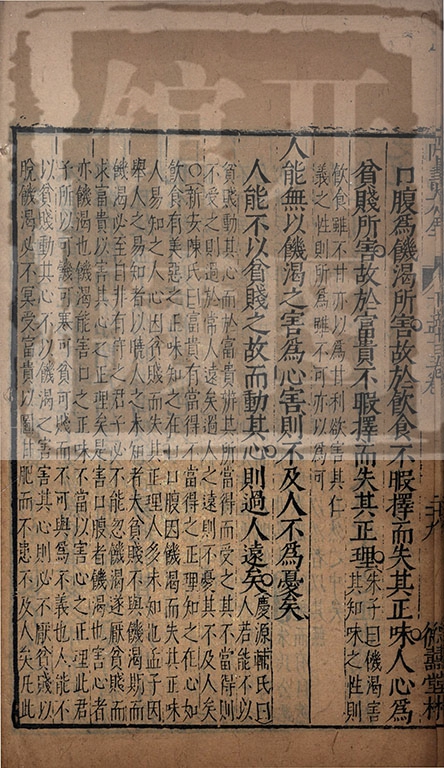 口腹爲饑渴所害故於飲食不暇擇而失其正味人心爲
貧賤所害故於富貴不暇擇而失其正理
朱子曰饑渴害
其知味之性則
飲食雖不甘亦以爲甘利欲害其仁
義之性則所爲雖不可亦以爲可
人能無以饑渴之害爲心害則不及人不爲憂矣
人能不以貧賤之故而動其心則過人遠矣
慶源輔氏曰
人若能不以
貧賤動其心而於富貴辨其所當得而受之其不當得則
不受之則過於常人遠矣過人之遠則不憂其不及人矣
○新安陳氏曰富貴有當得不當得之正理知之在心如
飲食有美惡之正味知之在口口腹因饑渴而失其正味
人易知之人心因貧賤而失其正理人多未知也孟子因
舉人之易知者以曉人之未知者夫貧賤不與饑渴期而
饑渴必至自非有守之君子必不能忍饑渴遂厭貧賤而
求富貴以害其心之正理是害口腹者饑渴也害心者
亦饑渴也饑渴能害口之正味不當以害心之正理此君
子所以可饑可寒可貧可賤而不可與爲不義也人能不
以貧賤動其心不以饑渴之害害其心則必不厭貧賤以
脫饑渴必不冥受富貴以圖甘肥而不患不及人矣凡此